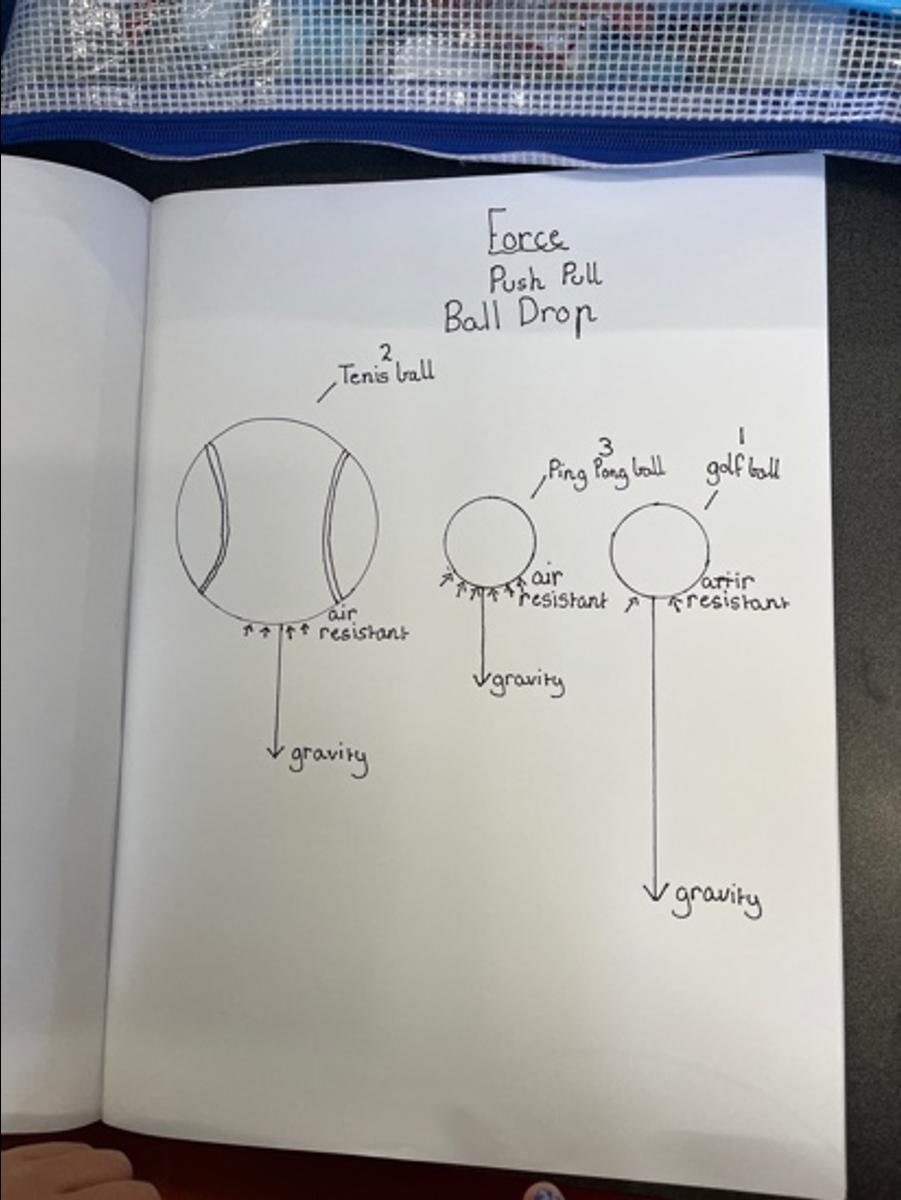 Force
Push Pull
Ball Drop
2
Tenis ball
3
Ping Pong ball
1
golf ball
air
resistant
gravity
air
resistant
gravity
arrir
resistant
gravity